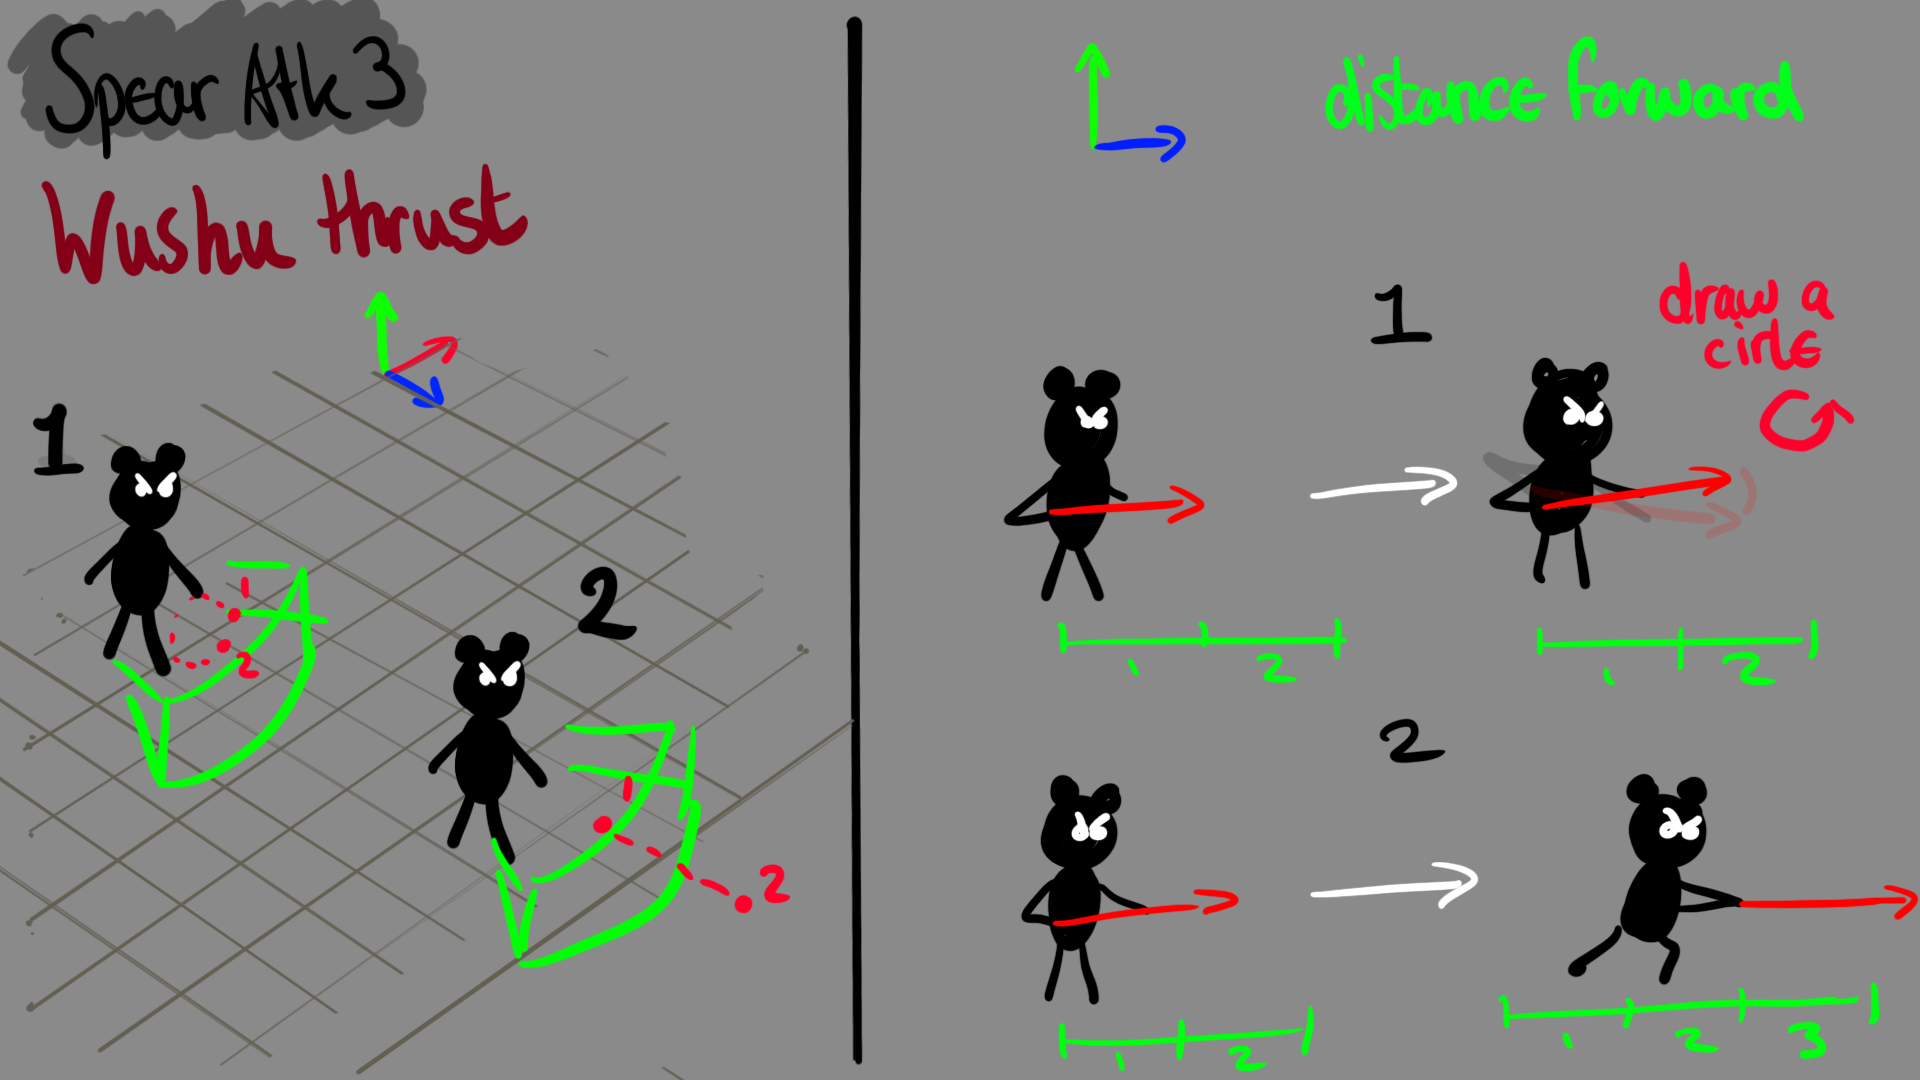 Spear Atk 3
Wushu thrust
1
1
2
2
1
2
distance forward
1
draw a
cirlE
1
2
1
2
2
1
2
1
2
3